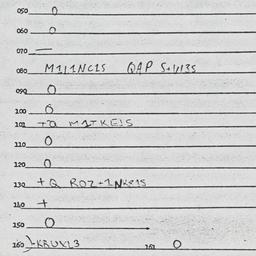 050 0
060 0
070 —
080 M111NC1S QAP S+1135
090 0
100 0
101 +a M1TKE!S
110 0
120 0
130 +Q ROZ+1NKE1S
140 +
150 0
160 KRUXL3 161 0